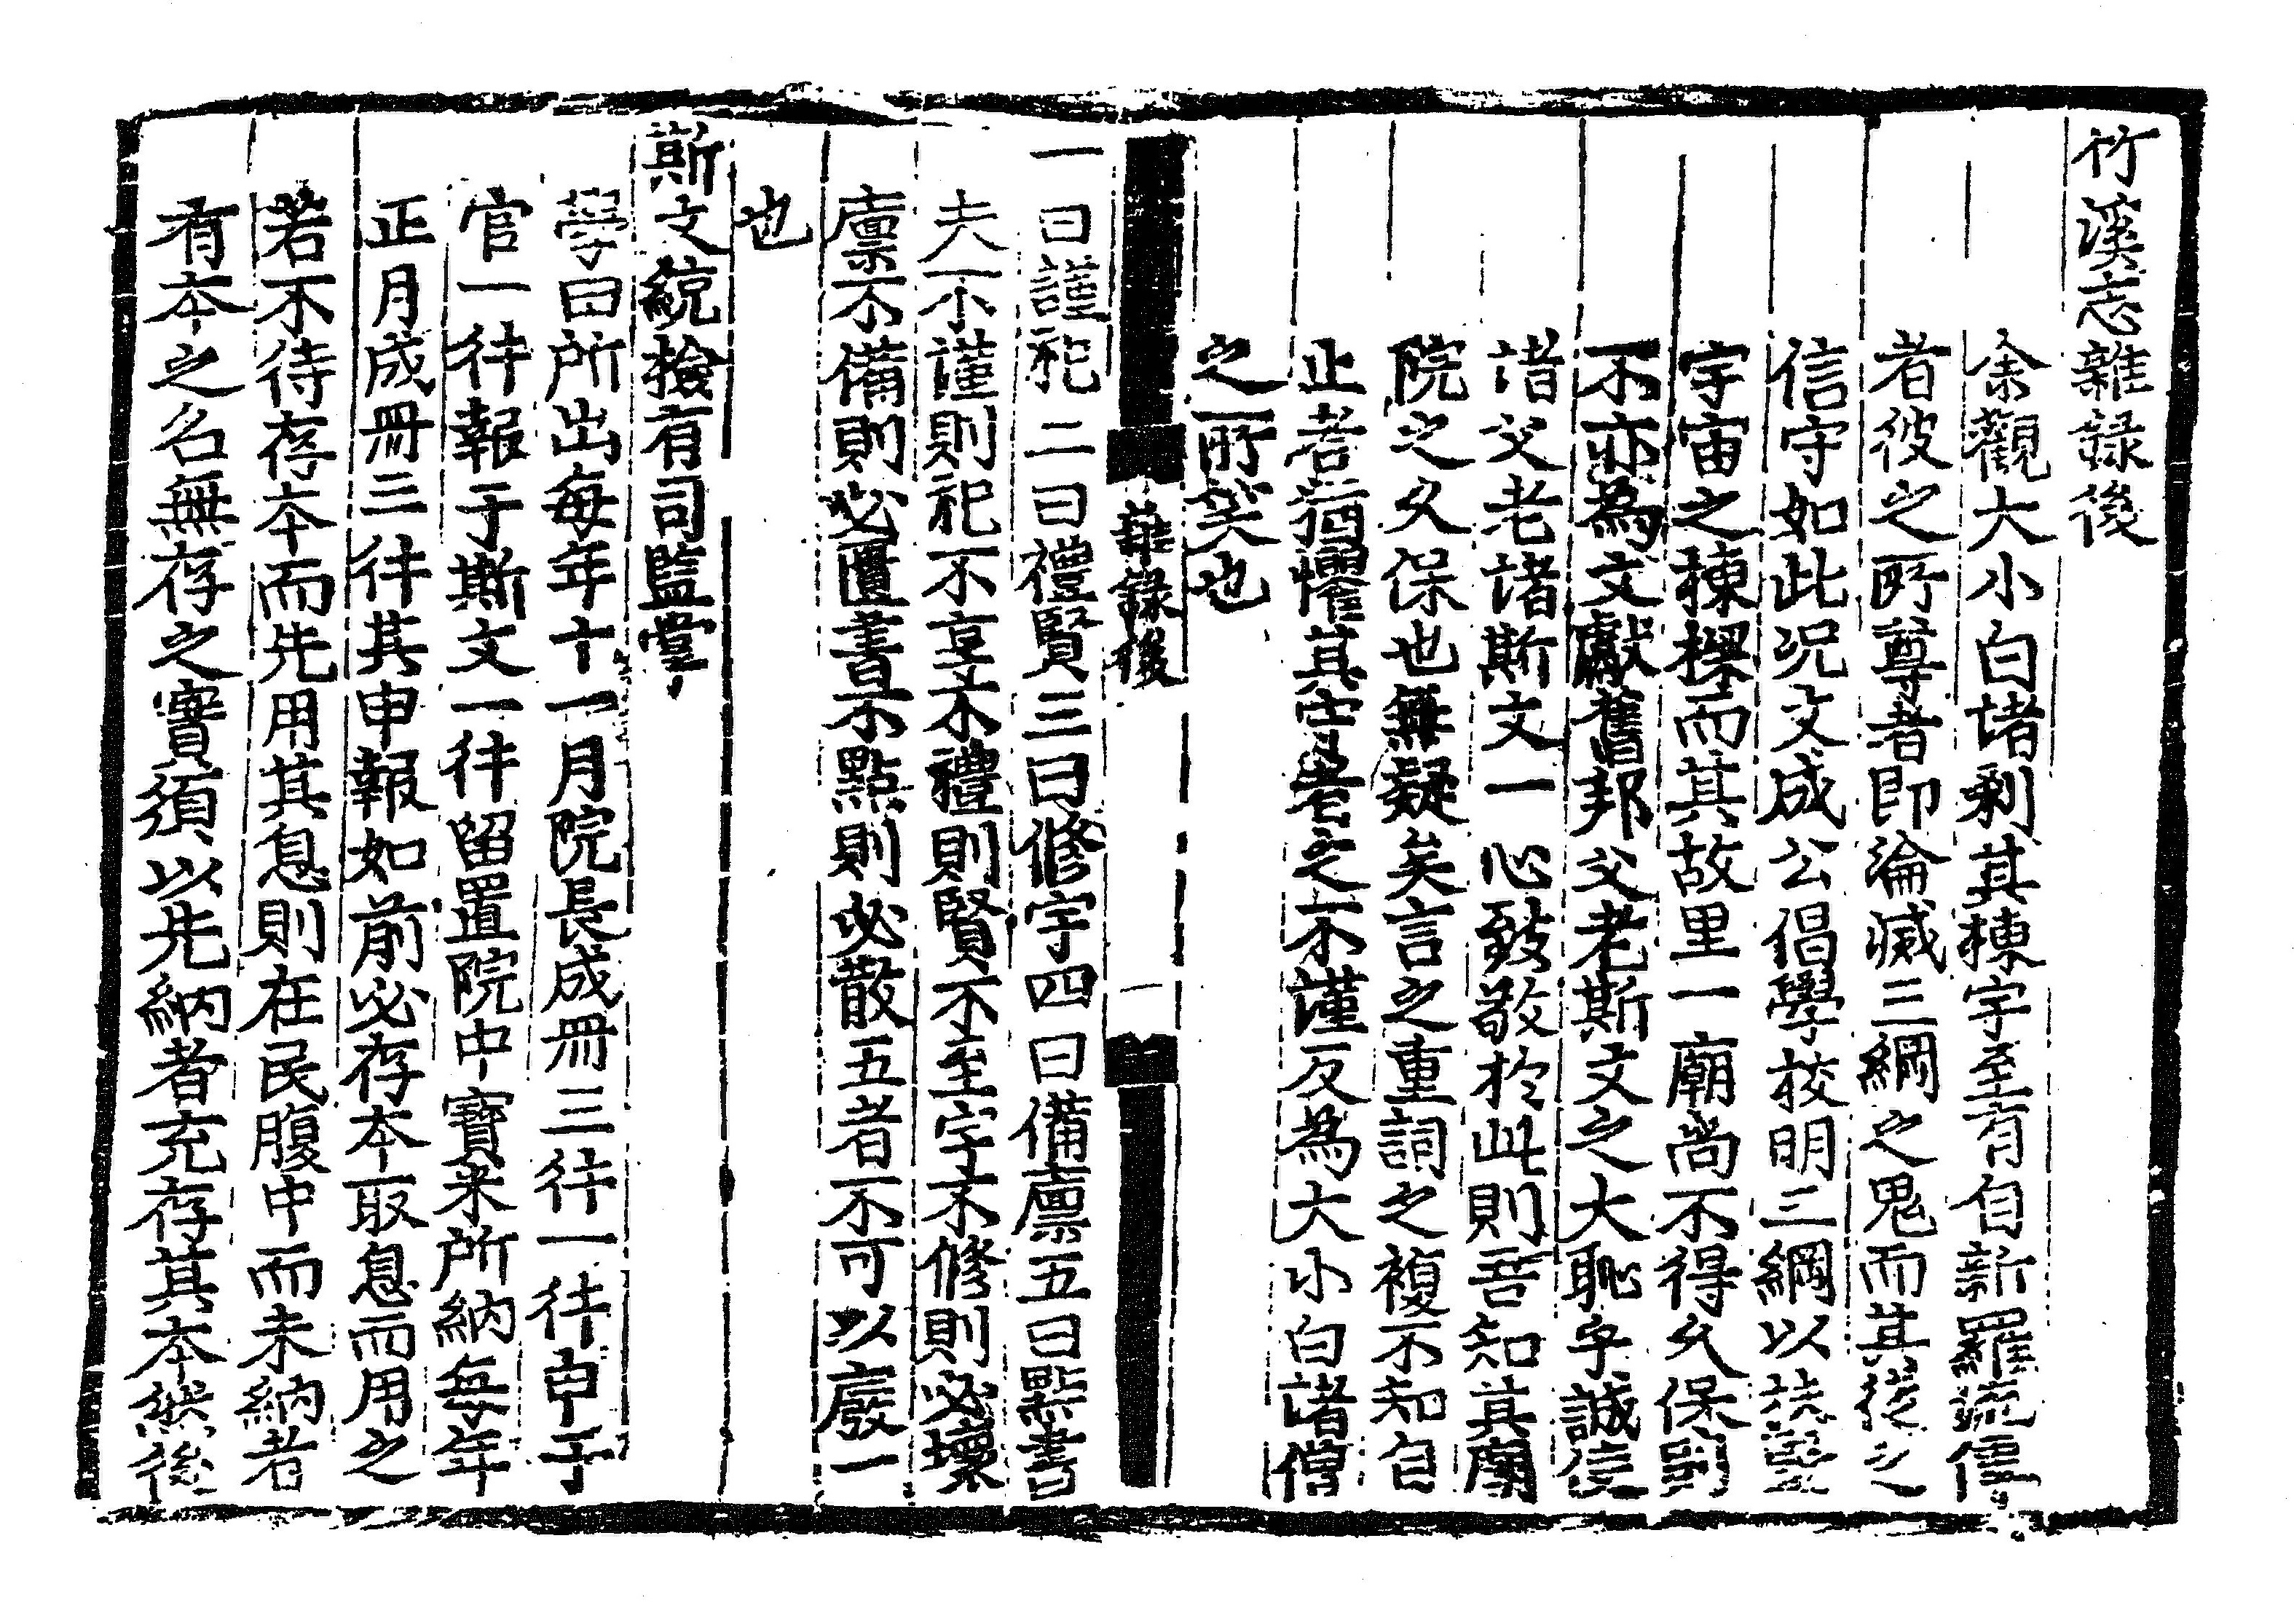 竹溪志雜録後
余觀大小白諸刹其棟宇至有自新羅流傳
者彼之所尊者即淪滅三綱之鬼而其徒之
信守如此况文成公倡學校明三綱以扶豎
宇宙之棟樑而其故里一廟尚不得久保到
不亦為文獻舊邦父老斯文之大恥乎誠使
諸父老諸斯文一心致敬於此則吾知其廟
院之久保也無疑矣言之重詞之複不知自
止者猶懼其守者之不謹反為大小白諸僧
之所笑也
雜録後
一
一曰謹祀二曰禮賢三曰修宇四曰備廩五曰點書
夫不謹則祀不享不禮則賢不至宇不修則必壞
廩不備則必匱書不點則必散五者不可以廢一
也
斯文統撿有司監掌
學曰所出每年十一月院長成冊三件一件申于
官一件報于斯文一件留置院中寶米所納每年
正月成冊三件其申報如前必存本取息而用之
若不待存本而先用其息則在民腹中而未納者
有本之名無存之實須以先納者充存其本然後